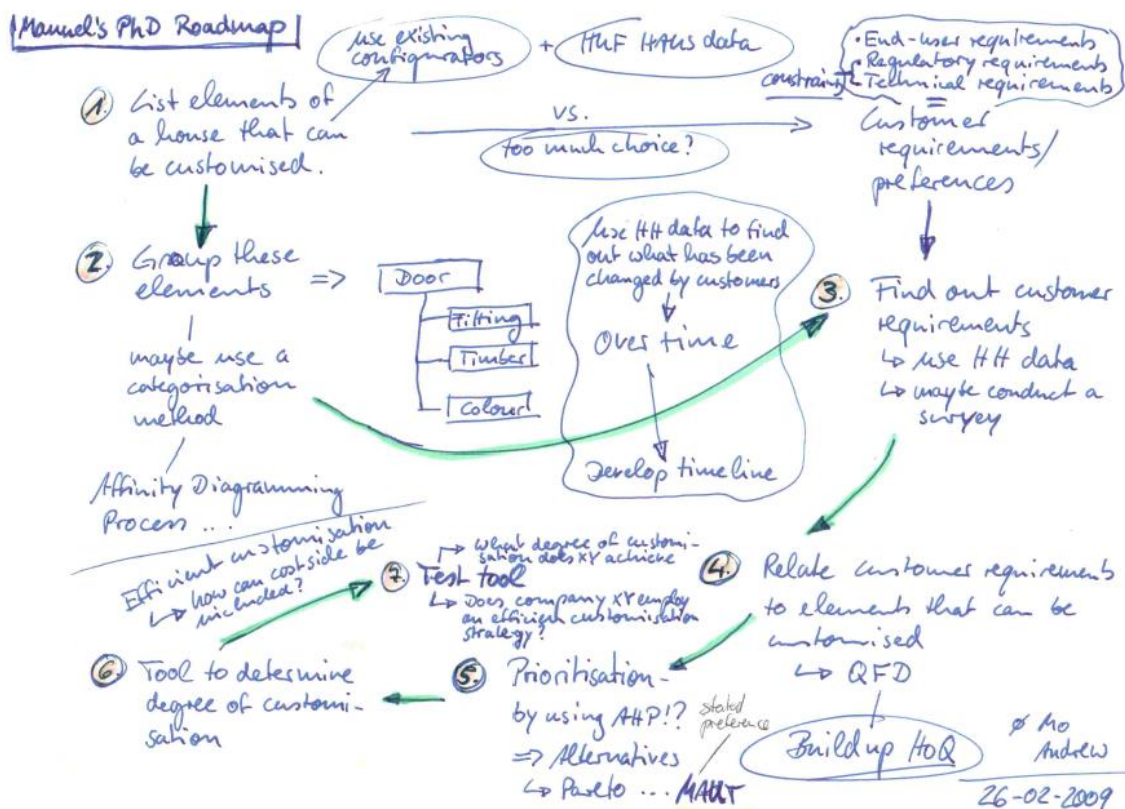 Manuel's PhD Roadmap
use existing
configurators
+
HUF HAUS data
• End-user requirements
• Regulatory requirements
• Technical requirements
constraints
=
Customer
requirements/
preferences
1. List elements of
a house that can
be customised.
vs.
too much choice?
2. Group these
elements
=>
Door
Fitting
Timber
Colour
maybe use a
categorisation
method
Affinity Diagramming
Process ...
Use HH data to find
out what has been
changed by customers
Over time
Develop timeline
3. Find out customer
requirements
↳ use HH data
↳ maybe conduct a
survey
4. Relate customer requirements
to elements that can be
customised
↳ QFD
Build up HoQ
5. Prioritisation -
by using AHP!?
=> Alternatives
↳ Pareto ... MAUT
stated
preference
6. Tool to determine
degree of customi-
sation
Efficient customisation
↳ how can cost side be
included?
7. Test tool
What degree of customi-
sation does XY achieve
↳ Does company XY employ
an efficient customisation
strategy?
Ø Mo
Andrew
26-02-2009